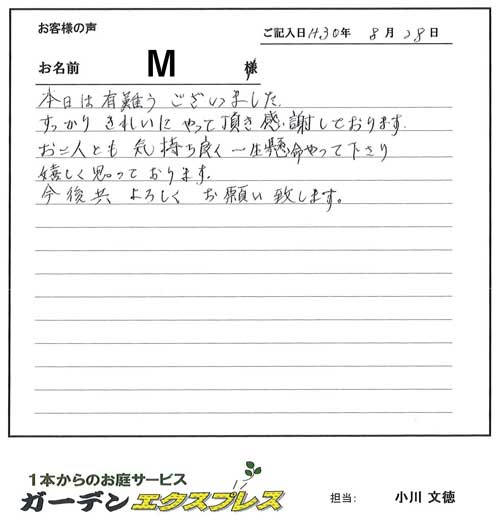 お客様の声
ご記入日 H.30年 8月 28日
お名前 M 様
本日は有難うございました.
すっかりきれいにやって頂き感謝しております.
お二人とも気持ち良く一生懸命やって下さり
嬉しく思っております.
今後共よろしくお願い致します。
1本からのお庭サービス
ガーデンエクスプレス
担当: 小川 文徳